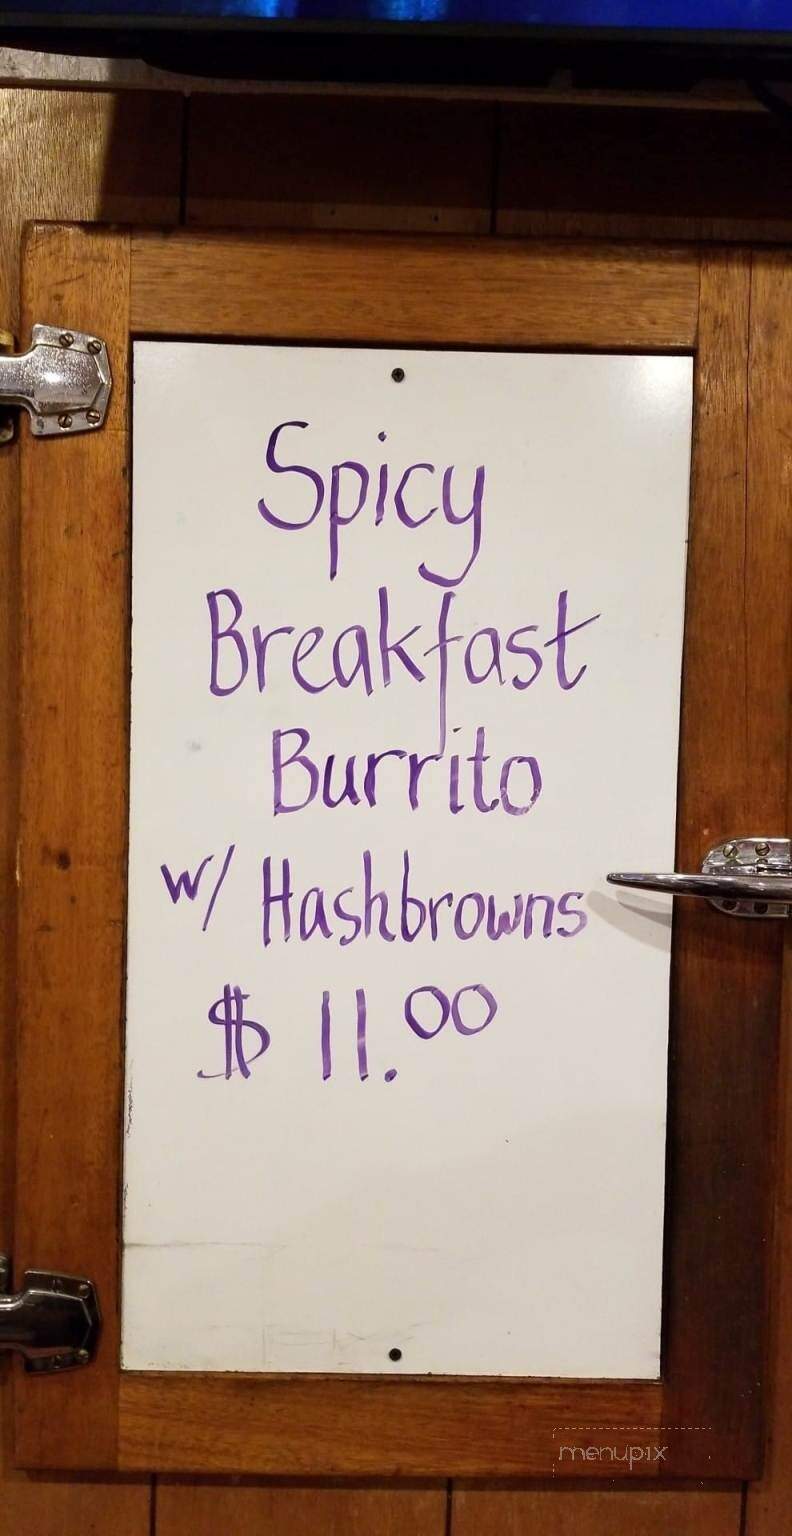 Spicy
Breakfast
Burrito
w/ Hashbrowns
$ 11.00
menupix